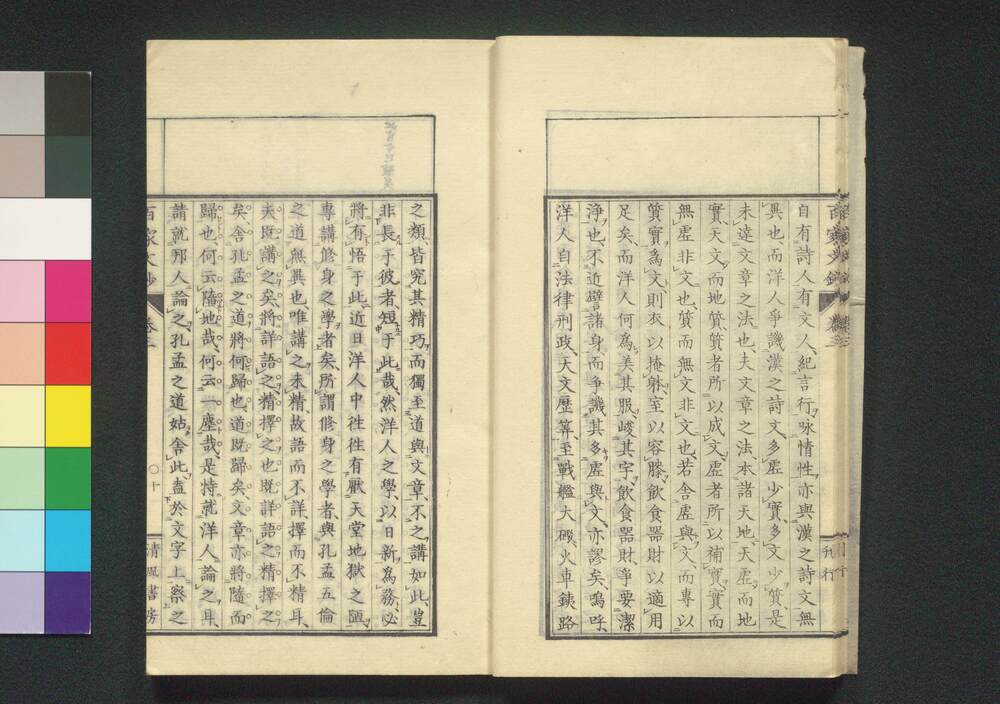 自有詩人有文人、紀言行、咏情性、亦與漢之詩文無
異也而洋人爭譏漢之詩文多虛少實多文少質是
未達文章之法也夫文章之法本諸天地天虛而地
實、天文而地質、質者所以成文、虛者所以補實、實而
無虛非文也、質而無文非文也若舍虛與文、而專以
質實為文、則衣以掩躰、室以容膝、飲食器財以適用
足矣、而洋人何為美其服、峻其宇、飲食器財、爭要潔
淨也、不近譬諸身、而爭譏其多虛與文、亦謬矣、嗚呼、
洋人自法律刑政、天文歷筭、至戰艦大礟、火車銕路
之類、皆究其精巧、而獨至道與文章、不之講如此、豈
非長于彼者短于此哉、然洋人之學、以日新為務、必
將有悟于此、近日洋人中往往有厭天堂地獄之陋
專講修身之學者矣、所謂修身之學者、與孔孟五倫
之道無異也唯講之未精故語而不詳擇而不精耳、
夫既講之矣、將詳語之精擇之也既詳語之精擇之
矣、舍孔孟之道將何歸也、道既歸矣、文章亦將隨而
歸也、何云陋地哉、何云一塵哉、是特就洋人論之耳、
請就邦人論之、孔孟之道姑舍此、盍於文字上察之
百家文鈔
卷三
〇十
清風書房